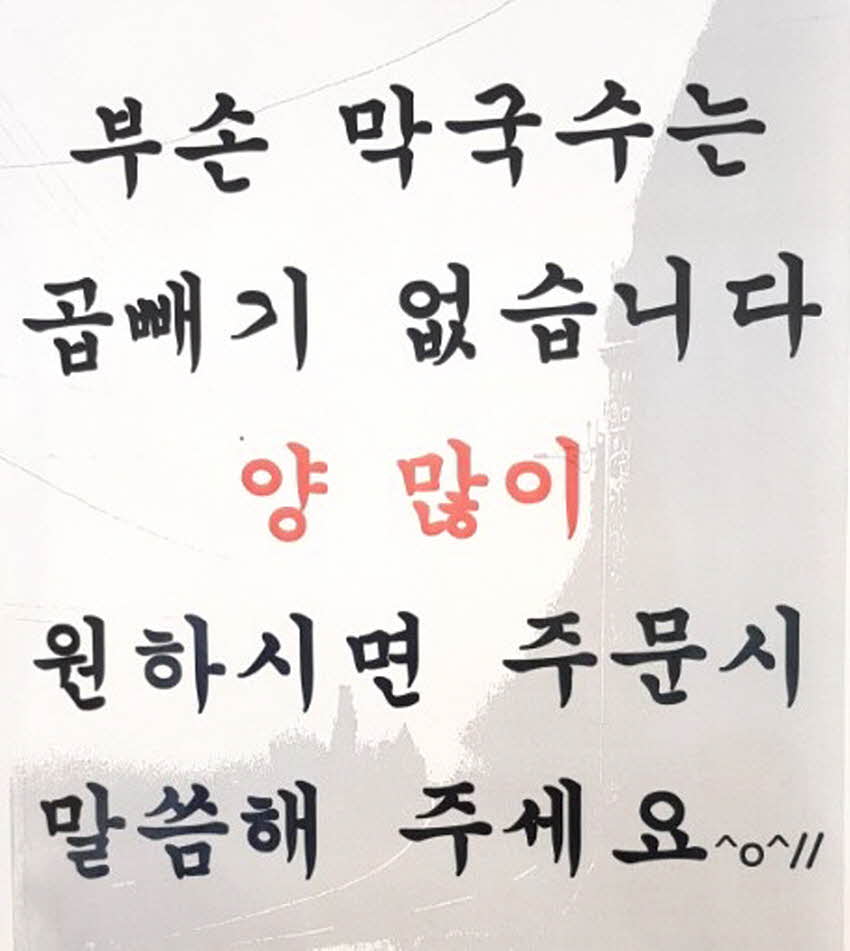 부손 막국수는
곱빼기 없습니다
양 많이
원하시면 주문시
말씀해 주세요^o^//